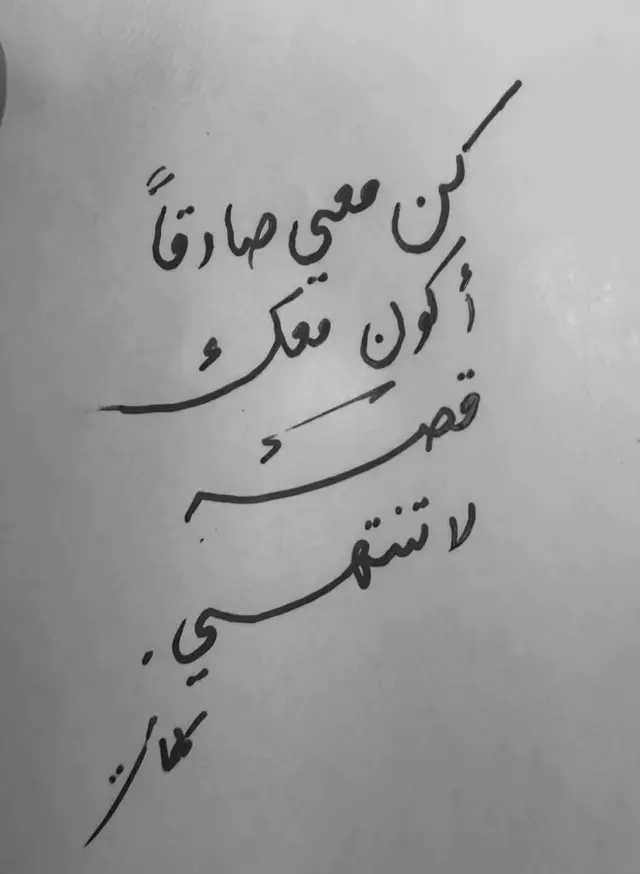 كن معي صادقاً
أكون معك
قصة
لا تنتهي.